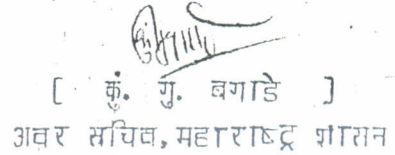 [ कुं. गु. बगाडे ]
अवर सचिव, महाराष्ट्र शासन